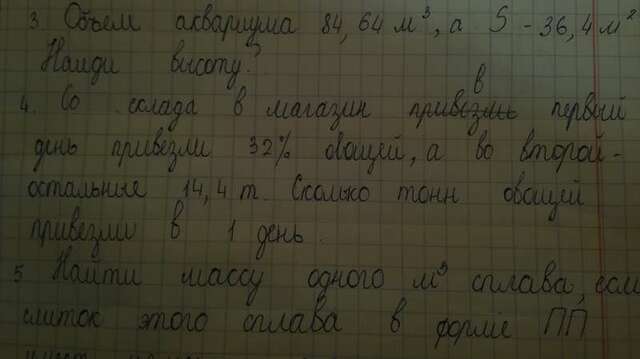 3 Объем аквариума 84,64 м³, а S - 36,4 м²
Найди высоту?
4. Со склада в магазин привезли в первый
день привезли 32% овощей, а во второй -
остальные 14,4 т. Сколько тонн овощей
привезли в 1 день.
5 Найти массу одного м³ сплава, если
слиток этого сплава в форме ПП